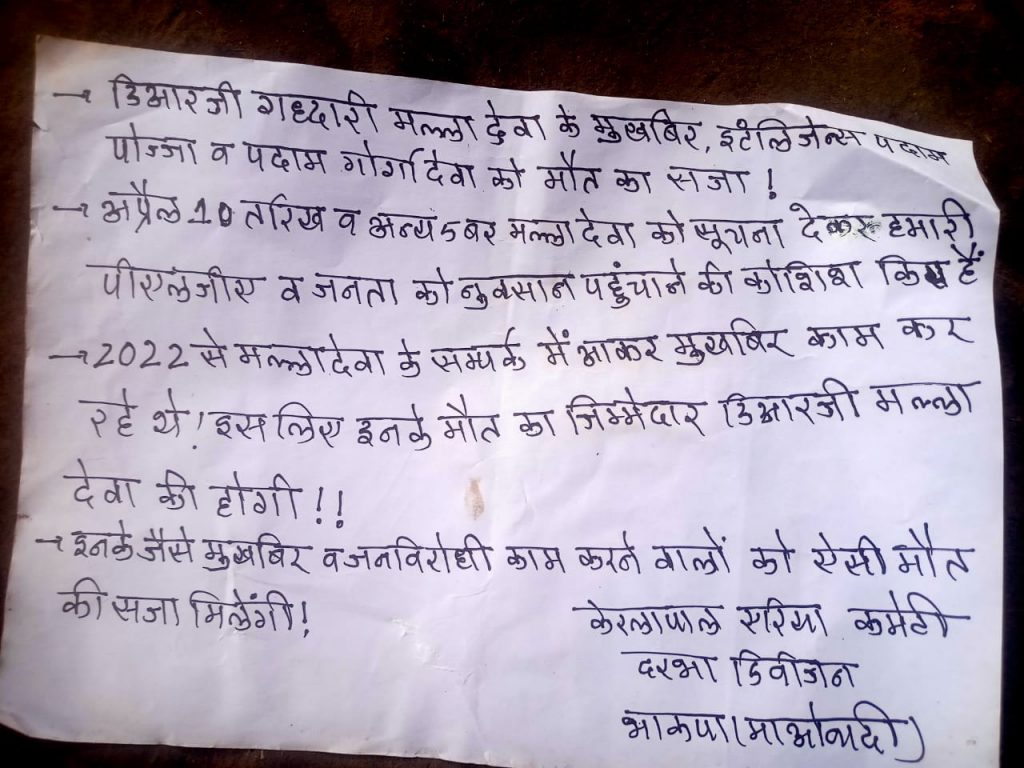 → डिआरजी गध्दारी मल्ला देवा के मुखबिर, इटेलिजेन्स पदाम
पोज्जा व पदाम गोर्गादेवा को मौत का सजा !
→ अप्रैल 10 तरिख व अन्य 5 बर मल्लादेवा को सूचना देकर हमारी
पीएलजीए व जनता को नुक्सान पहुंचाने की कोशिश किए हैं
→ 2022 से मल्लादेवा के सम्पर्क में आकर मुखबिर काम कर
रहे थे! इस लिए इनके मौत का जिम्मेदार डिआरजी मल्ला
देवा की होगी !!
→ इनके जैसे मुखबिर व जनविरोधी काम करने वालों को ऐसी मौत
की सजा मिलेंगी!
केरलापाल एरिया कमेटी
दरभा डिवीजन
भाकपा (माओवादी)